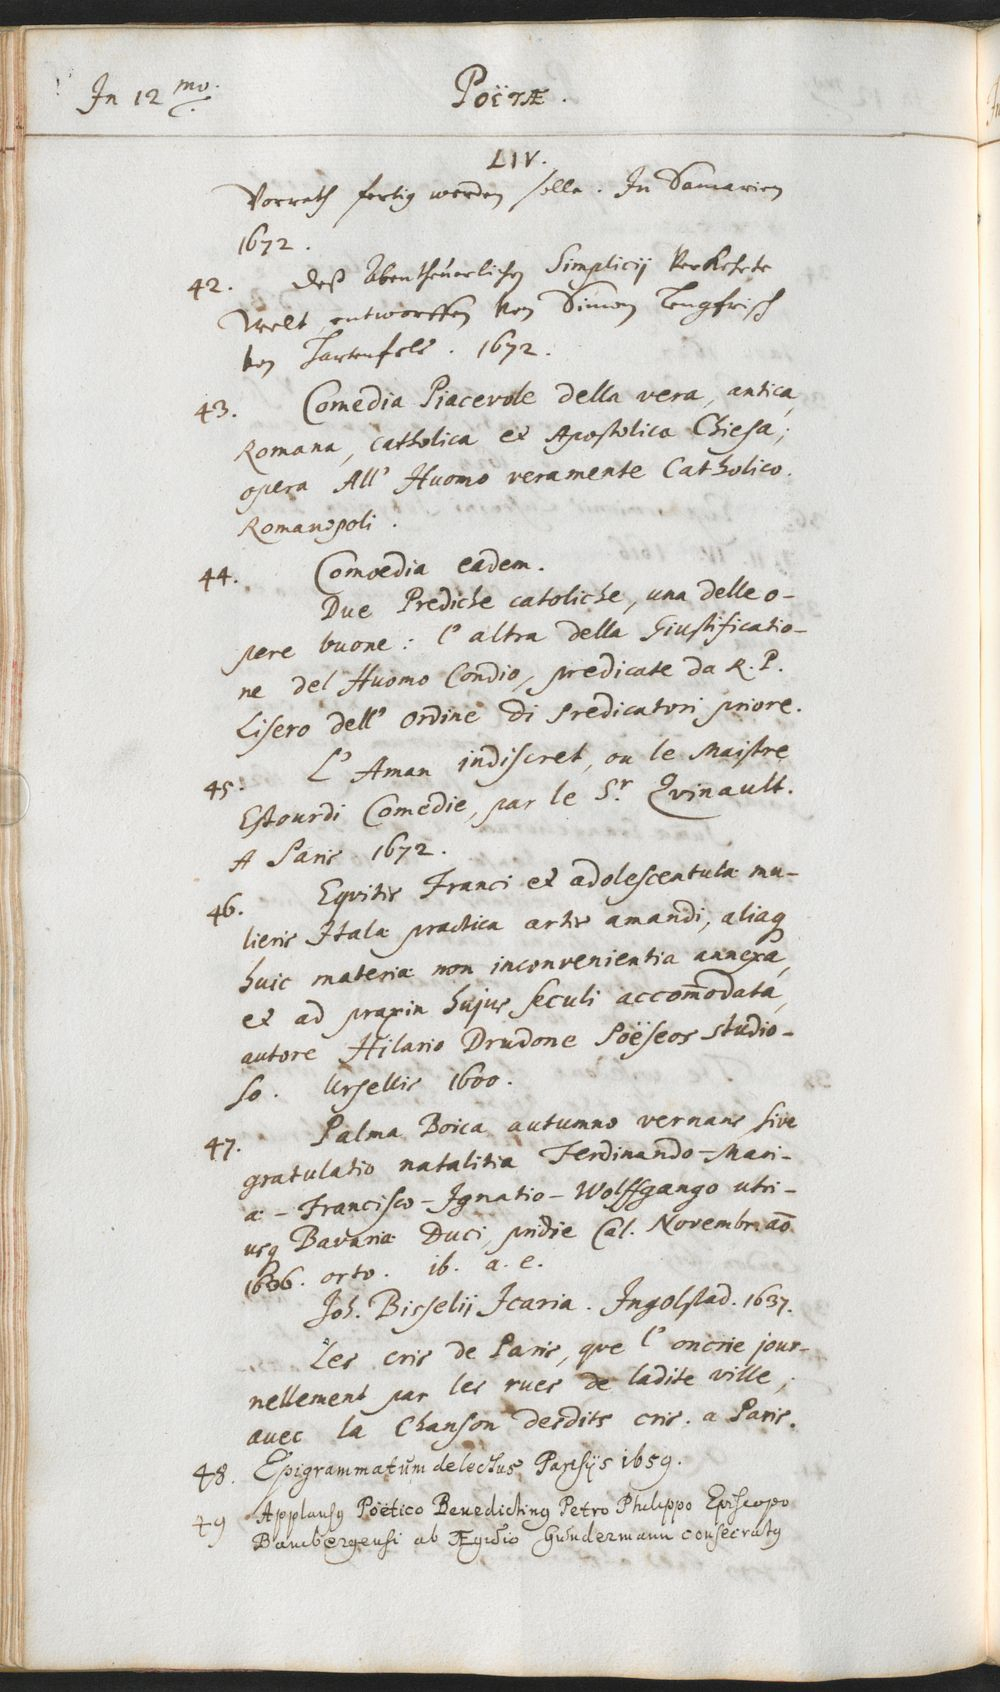 In 12 mo.
Poëtæ.
LIV.
Vorrath fertig werden solle. In Samarien
1672.
42. Deß Abentheurlichen Simplicij Verkehrte
Welt, entworffen von Simon Lengfrisch
von Hartenfels. 1672.
43. Comedia Piacevole della vera, antica,
Romana, catholica et Apostolica Chiesa;
opera All' Huomo veramente Catholico.
Romanopoli.
44. Comœdia eadem.
Due Prediche catoliche, una delle o-
pere buone: l'altra della Giustificatio-
ne del Huomo Condio, predicate da R. P.
Lisero dell' Ordine di Predicatori priore.
45. L' Aman indiscret, ou le Maistre
Estourdi Comedie, par le Sr. Qvinault.
A Paris 1672.
46. Eqvitis Franci et adolescentulæ mu-
lieris Italæ practica artis amandi, aliaq
huic materiæ non inconvenientia annexa,
et ad praxin hujus seculi accom̄odata,
autore Hilario Drudone Poëseos studio-
so. Ursellis 1600.
47. Palma Boica autumno vernans sive
gratulatio natalitia Ferdinando-Mari-
æ-Francisco-Ignatio-Wolffgango utri-
usq Bavariæ Duci, pridie Cal. Novembr. aō
1636. orto. ib. a. e.
Joh. Bisselij Icaria. Ingolstad. 1637.
Les cris de Paris, que l' on crie jour-
nellement par les rues de ladite ville,
avec la Chanson desdits cris. a Paris.
48. Epigrammatum delectus Parisijs 1659.
49 Applausq Poëtico Benedictinq Petro Philippo Episcopo
Bambergensi ab Ægidio Gundermann consecratq